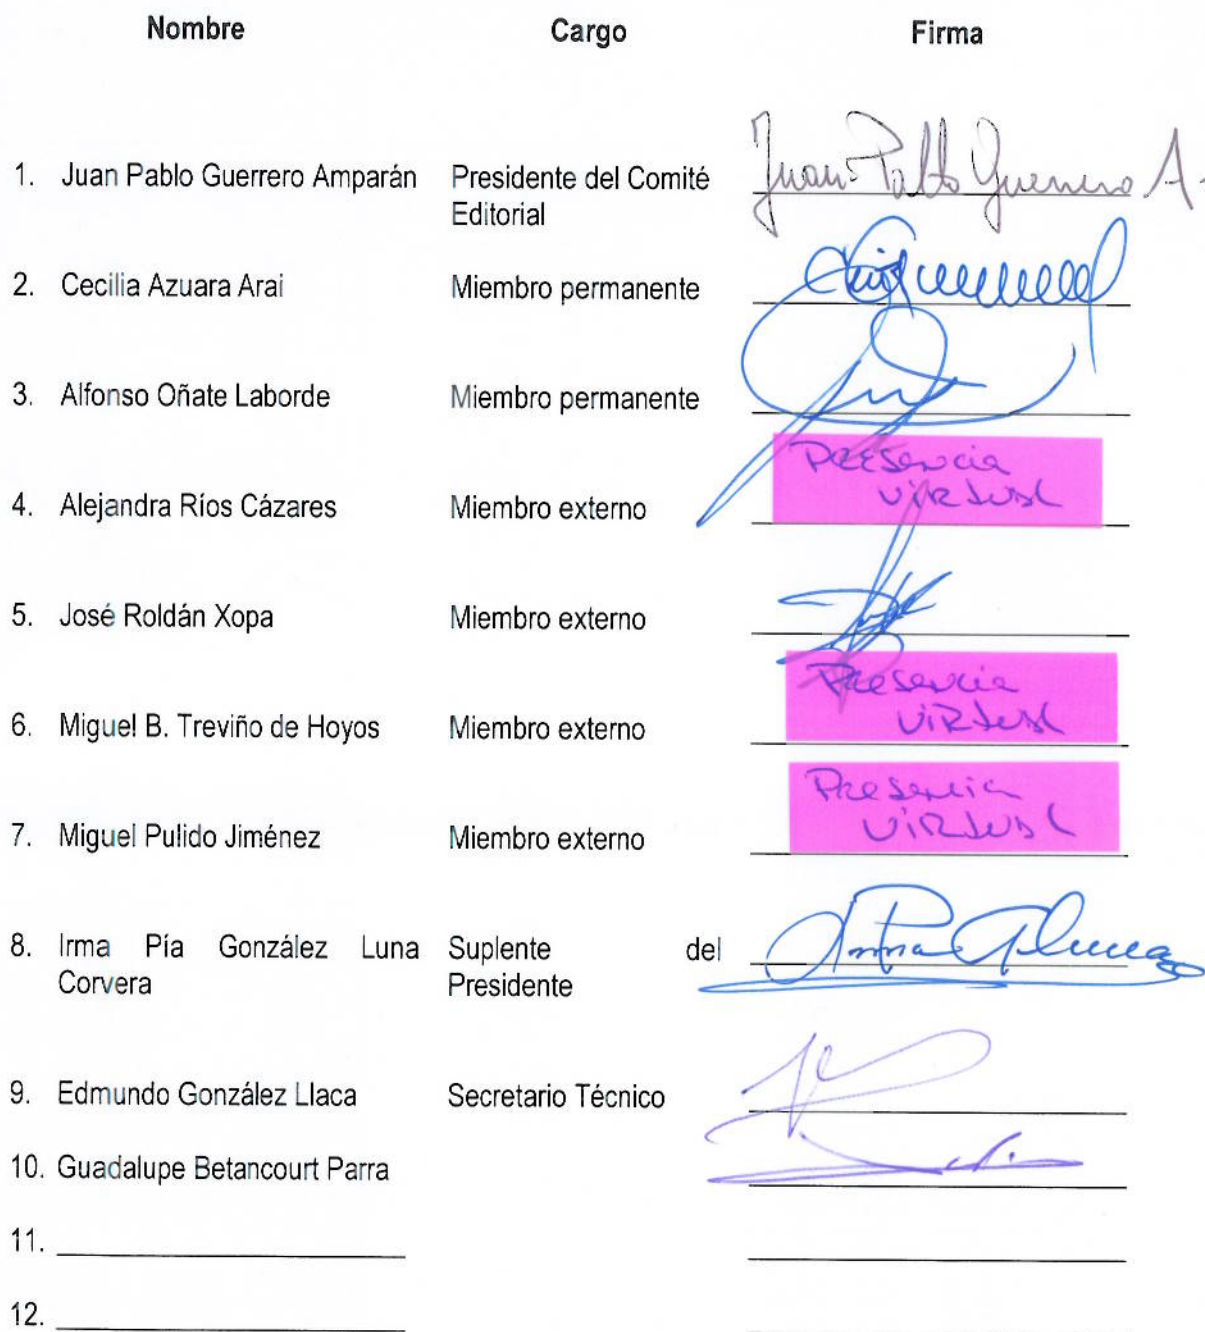 Nombre Cargo Firma
1. Juan Pablo Guerrero Amparán Presidente del Comité Juan Pablo Guerrero A.
Editorial
2. Cecilia Azuara Arai Miembro permanente
3. Alfonso Oñate Laborde Miembro permanente
Presencia
4. Alejandra Ríos Cázares Miembro externo virtual
5. José Roldán Xopa Miembro externo
Presencia
6. Miguel B. Treviño de Hoyos Miembro externo virtual
Presencia
7. Miguel Pulido Jiménez Miembro externo virtual
8. Irma Pía González Luna Suplente del
Corvera Presidente
9. Edmundo González Llaca Secretario Técnico
10. Guadalupe Betancourt Parra
11.
12.